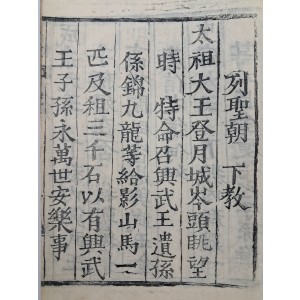 列聖朝 下教
太祖大王登月城岑頭眺望
時 特命召興武王遺孫
係錦九龍䓁給影山馬一
匹及租三千石以有興武
王子孫永萬世安樂事